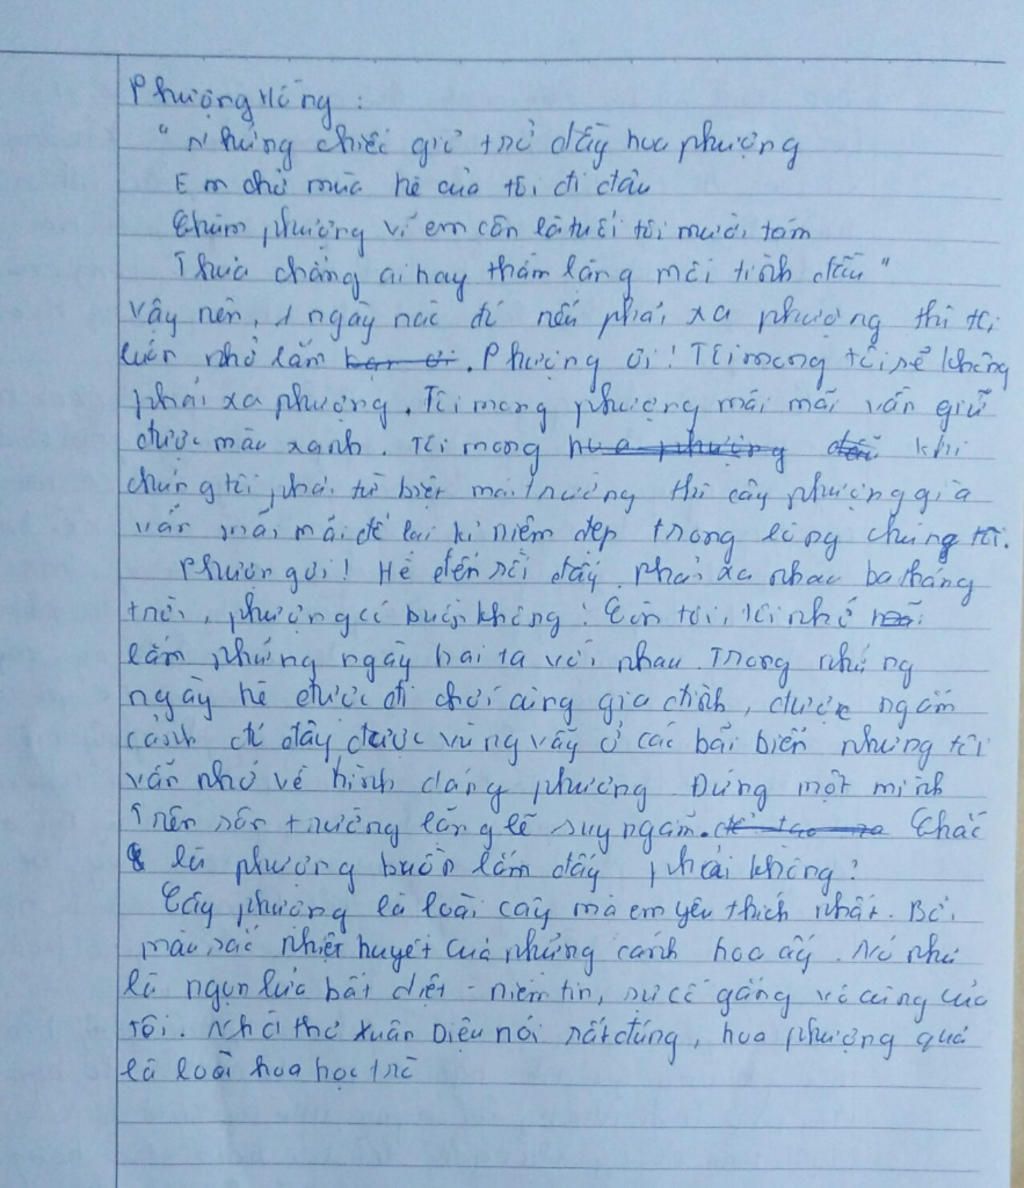 Phượng Hồng :
" Những chiếc giỏ trở đầy hoa phượng
Em chở mùa hè của tôi đi đâu
Chùm phượng vĩ em cồn là tuổi tôi mười tám
Thuở chẳng ai hay thầm lặng mối tình đầu "
Vậy nên, 1 ngày nào đó nếu phải xa phượng thì tôi
luôn nhớ lắm bạn ơi. Phượng ơi! Tôi mong tôi sẽ không
phải xa phượng. Tôi mong phượng mãi mãi vẫn giữ
được màu xanh. Tôi mong hoa phượng khi
chúng tôi phải từ biệt mái trường thì cây phượng già
vẫn mãi mãi để lại kỉ niệm đẹp trong lòng chúng tôi.
Phượng ơi! Hè đến rồi đấy phải xa nhau ba tháng
trời, phượng có buồn không? Còn tôi, tôi nhớ
lắm những ngày hai ta với nhau. Trong những
ngày hè được đi chơi cùng gia đình, được ngắm
cảnh đó đây được vùng vẫy ở các bãi biển nhưng tôi
vẫn nhớ về hình dáng phượng Đứng một mình
trên sân trường lặng lẽ suy ngẫm. Chắc
là phượng buồn lắm đấy phải không?
Cây phượng là loài cây mà em yêu thích nhất. Bởi
màu sắc nhiệt huyết của những cánh hoa ấy. Nó như
là ngọn lửa bất diệt - niềm tin, sự cố gắng vô cùng của
tôi. Nhà thơ Xuân Diệu nói rất đúng, hoa phượng quả
là loài hoa học trò